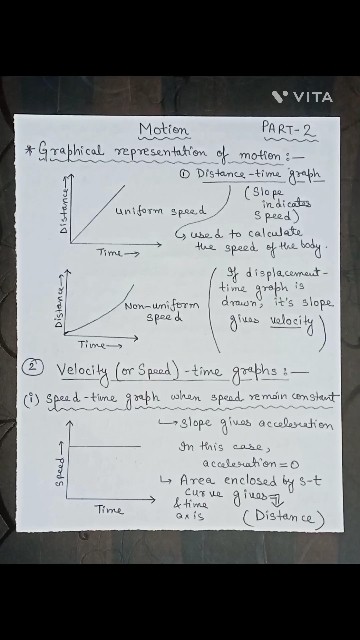 VITA
Motion PART-2
* Graphical representation of motion:—
① Distance-time graph
(Slope
indicates
speed)
Distance→
uniform speed
↳ used to calculate
the speed of the body.
Time→
Distance→
Non-uniform
speed
Time→
(If displacement-
time graph is
drawn, it's slope
gives velocity)
② Velocity (or Speed)-time graphs:—
(i) Speed-time graph when speed remain constant
↳ Slope gives acceleration
In this case,
acceleration=0
↳ Area enclosed by s-t
curve gives
& time
axis
(Distance)
Speed→
Time